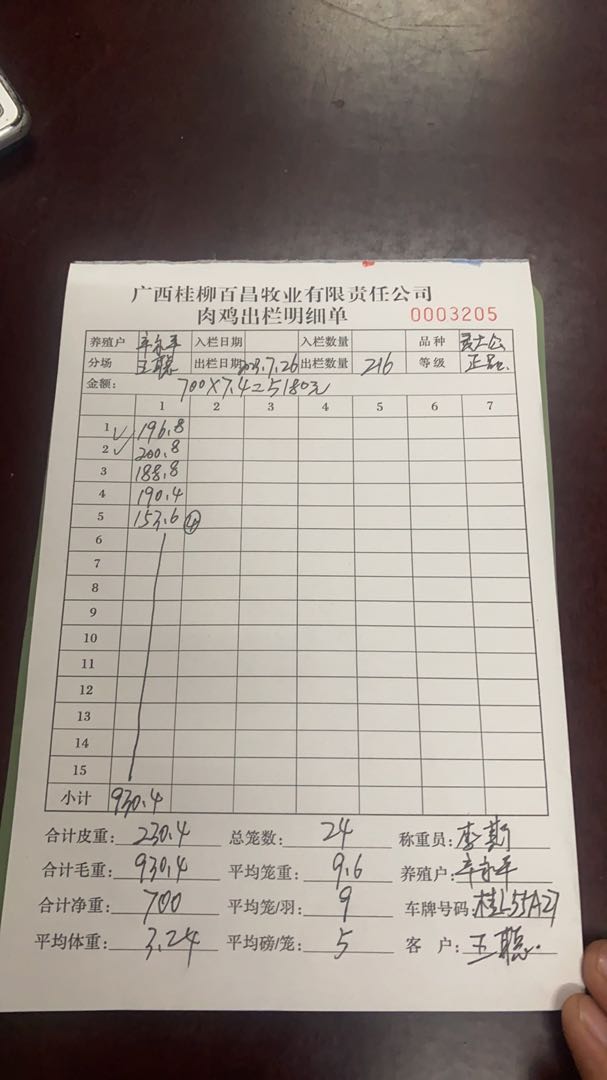 广西桂柳百昌牧业有限责任公司
肉鸡出栏明细单 0003205
养殖户 辛永平 入栏日期 入栏数量 品种
分场 王聪 出栏日期 2023.7.26 出栏数量 216 等级 正品
金额: 700×7.4=5180元
1 2 3 4 5 6 7
1 196.8
2 200.8
3 188.8
4 190.4
5 153.6 ④
6
7
8
9
10
11
12
13
14
15
小计 930.4
合计皮重: 230.4 总笼数: 24 称重员: 李斯
合计毛重: 930.4 平均笼重: 9.6 养殖户: 辛永平
合计净重: 700 平均笼/羽: 9 车牌号码: 桂L55A27
平均体重: 3.24 平均磅/笼: 5 客 户: 王聪